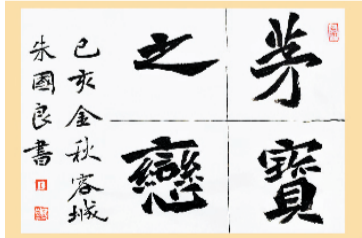 芳寶
之戀
己亥金秋容城
朱國良書